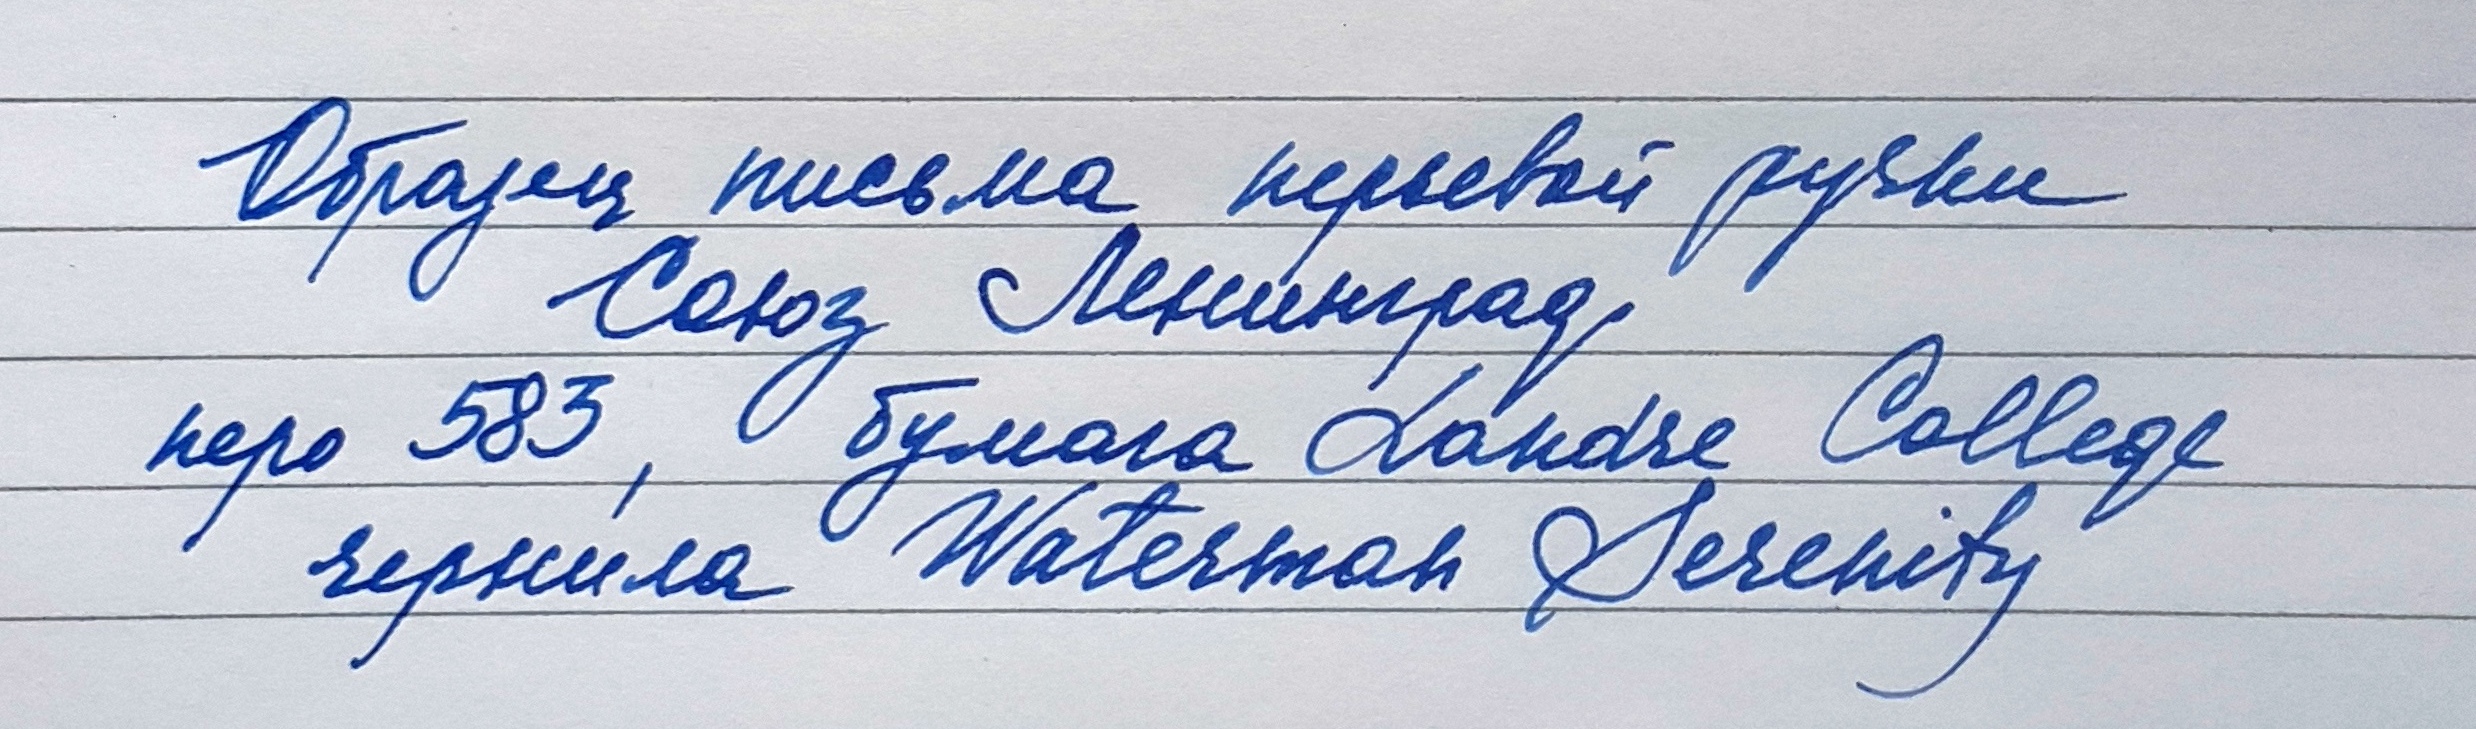 Образец письма перьевой ручки
Союз Ленинград
перо 583, бумага Landre College
чернила Waterman Serenity